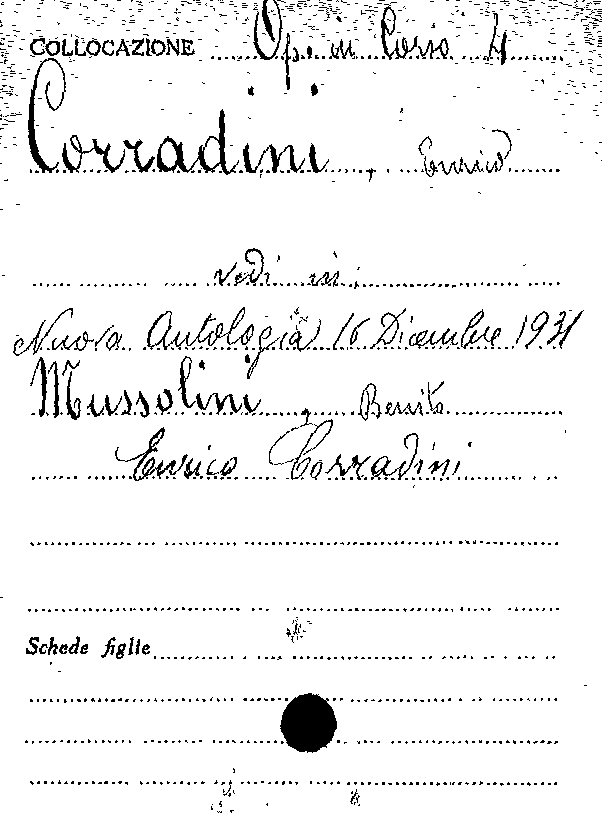 COLLOCAZIONE Op. in Corso 4
Corradini, Enrico
vedi in:
Nuova Antologia 16 Dicembre 1931
Mussolini, Benito
Enrico Corradini
Schede figlie